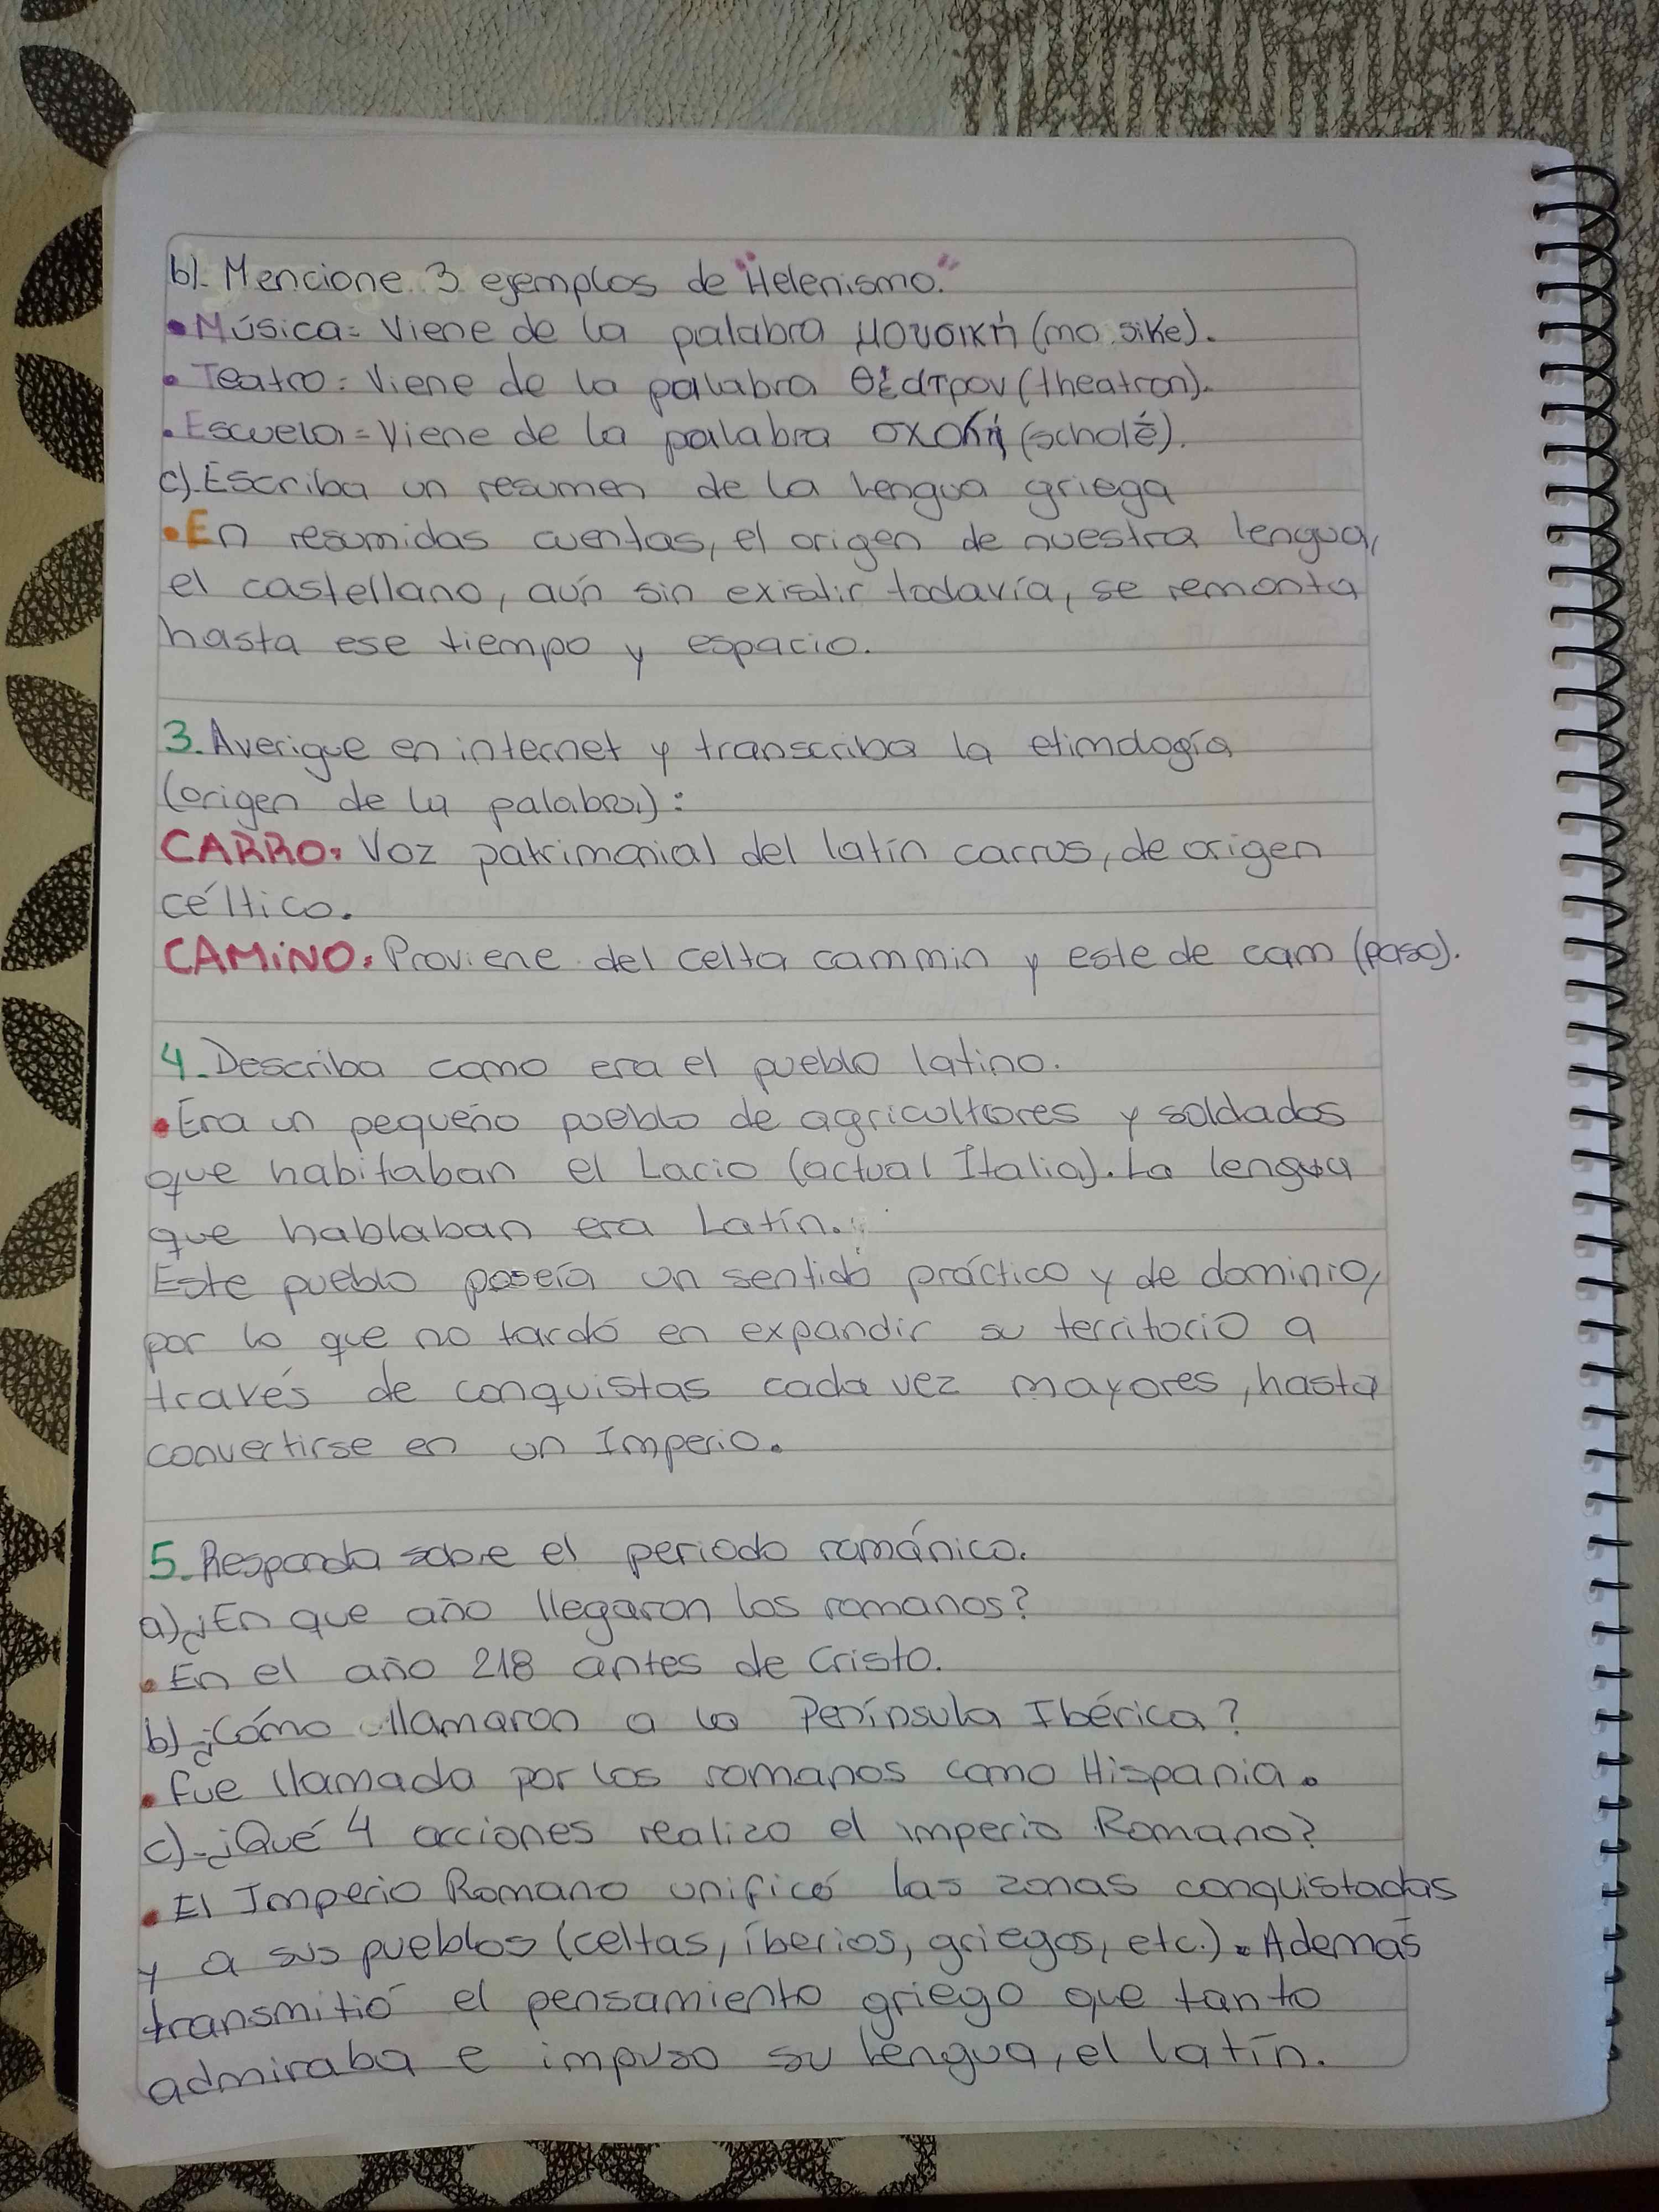 b). Mencione 3 ejemplos de "Helenismo."
• Música = Viene de la palabra μουσική (mo sike).
• Teatro = Viene de la palabra θέατρον (theatron).
• Escuela = Viene de la palabra (scholé).
c). Escriba un resumen de la lengua griega
• En resumidas cuentas, el origen de nuestra lengua,
el castellano, aún sin existir todavía, se remonta
hasta ese tiempo y espacio.
3. Averigue en internet y transcriba la etimología
(origen de la palabra):
CARRO: Voz patrimonial del latín carrus, de origen
céltico.
CAMINO: Proviene del celta cammin y este de cam (paso).
4. Describa como era el pueblo latino.
• Era un pequeño pueblo de agricultores y soldados
que habitaban el Lacio (actual Italia). La lengua
que hablaban era Latín.
Este pueblo poseía un sentido práctico y de dominio,
por lo que no tardó en expandir su territorio a
través de conquistas cada vez mayores, hasta
convertirse en un Imperio.
5. Responda sobre el periodo románico.
a) ¿En que año llegaron los romanos?
• En el año 218 antes de Cristo.
b) ¿Cómo llamaron a la Península Ibérica?
• Fue llamada por los romanos como Hispania.
c). ¿Qué 4 acciones realizo el imperio Romano?
• El Imperio Romano unificó las zonas conquistadas
y a sus pueblos (celtas, íberios, griegos, etc.). Además
transmitió el pensamiento griego que tanto
admiraba e impuso su lengua, el latín.